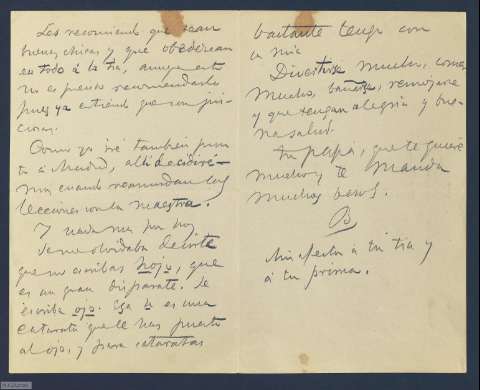 Les recomiendo que sean
buenas chicas y que obedezcan
en todo á la tía, aunque esto
no es preciso recomendarlo
pues ya entiendo que son pre-
ciosas.
Como yo iré también pron
to á Madrid, allí decidiré-
mos cuando reanudan las
lecciones con la maestra.
Y nada más por hoy
Se me olvidaba decirte
que no escribas hojo, que
es un gran disparate. Se
escribe ojo. Esa h es una
catarata que le has puesto
al ojo, y para cataratas
bastante tengo con
la mía
Divertirse mucho, comer
mucho, bañarse, remojarse
y que tengan alegría y bue-
na salud.
Tu papá, que te quiere
mucho, y te manda
muchos besos.
Mis afectos á tu tía y
á tu prima.